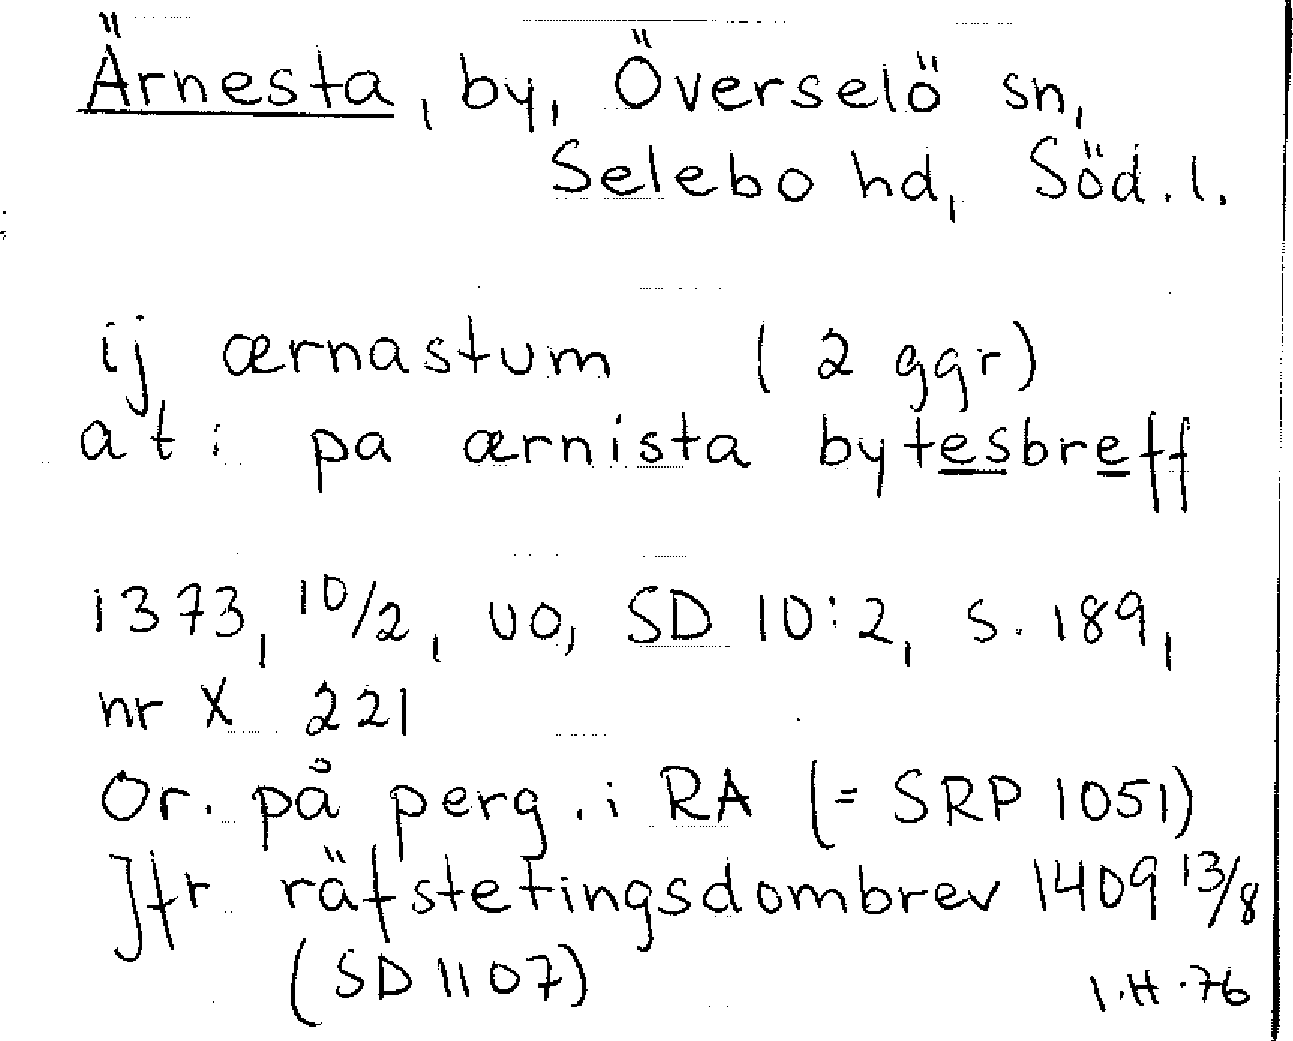 Ärnesta, by, Överselö sn,
Selebo hd, Söd. l.
ij ærnastum (2 ggr)
at: pa ærnista bytesbreff
1373, 10/2, uo, SD 10:2, s. 189,
nr X 221
Or. på perg. i RA (= SRP 1051)
Jfr räfstetingsdombrev 1409 13/8
(SD 1107)
I.H. 76